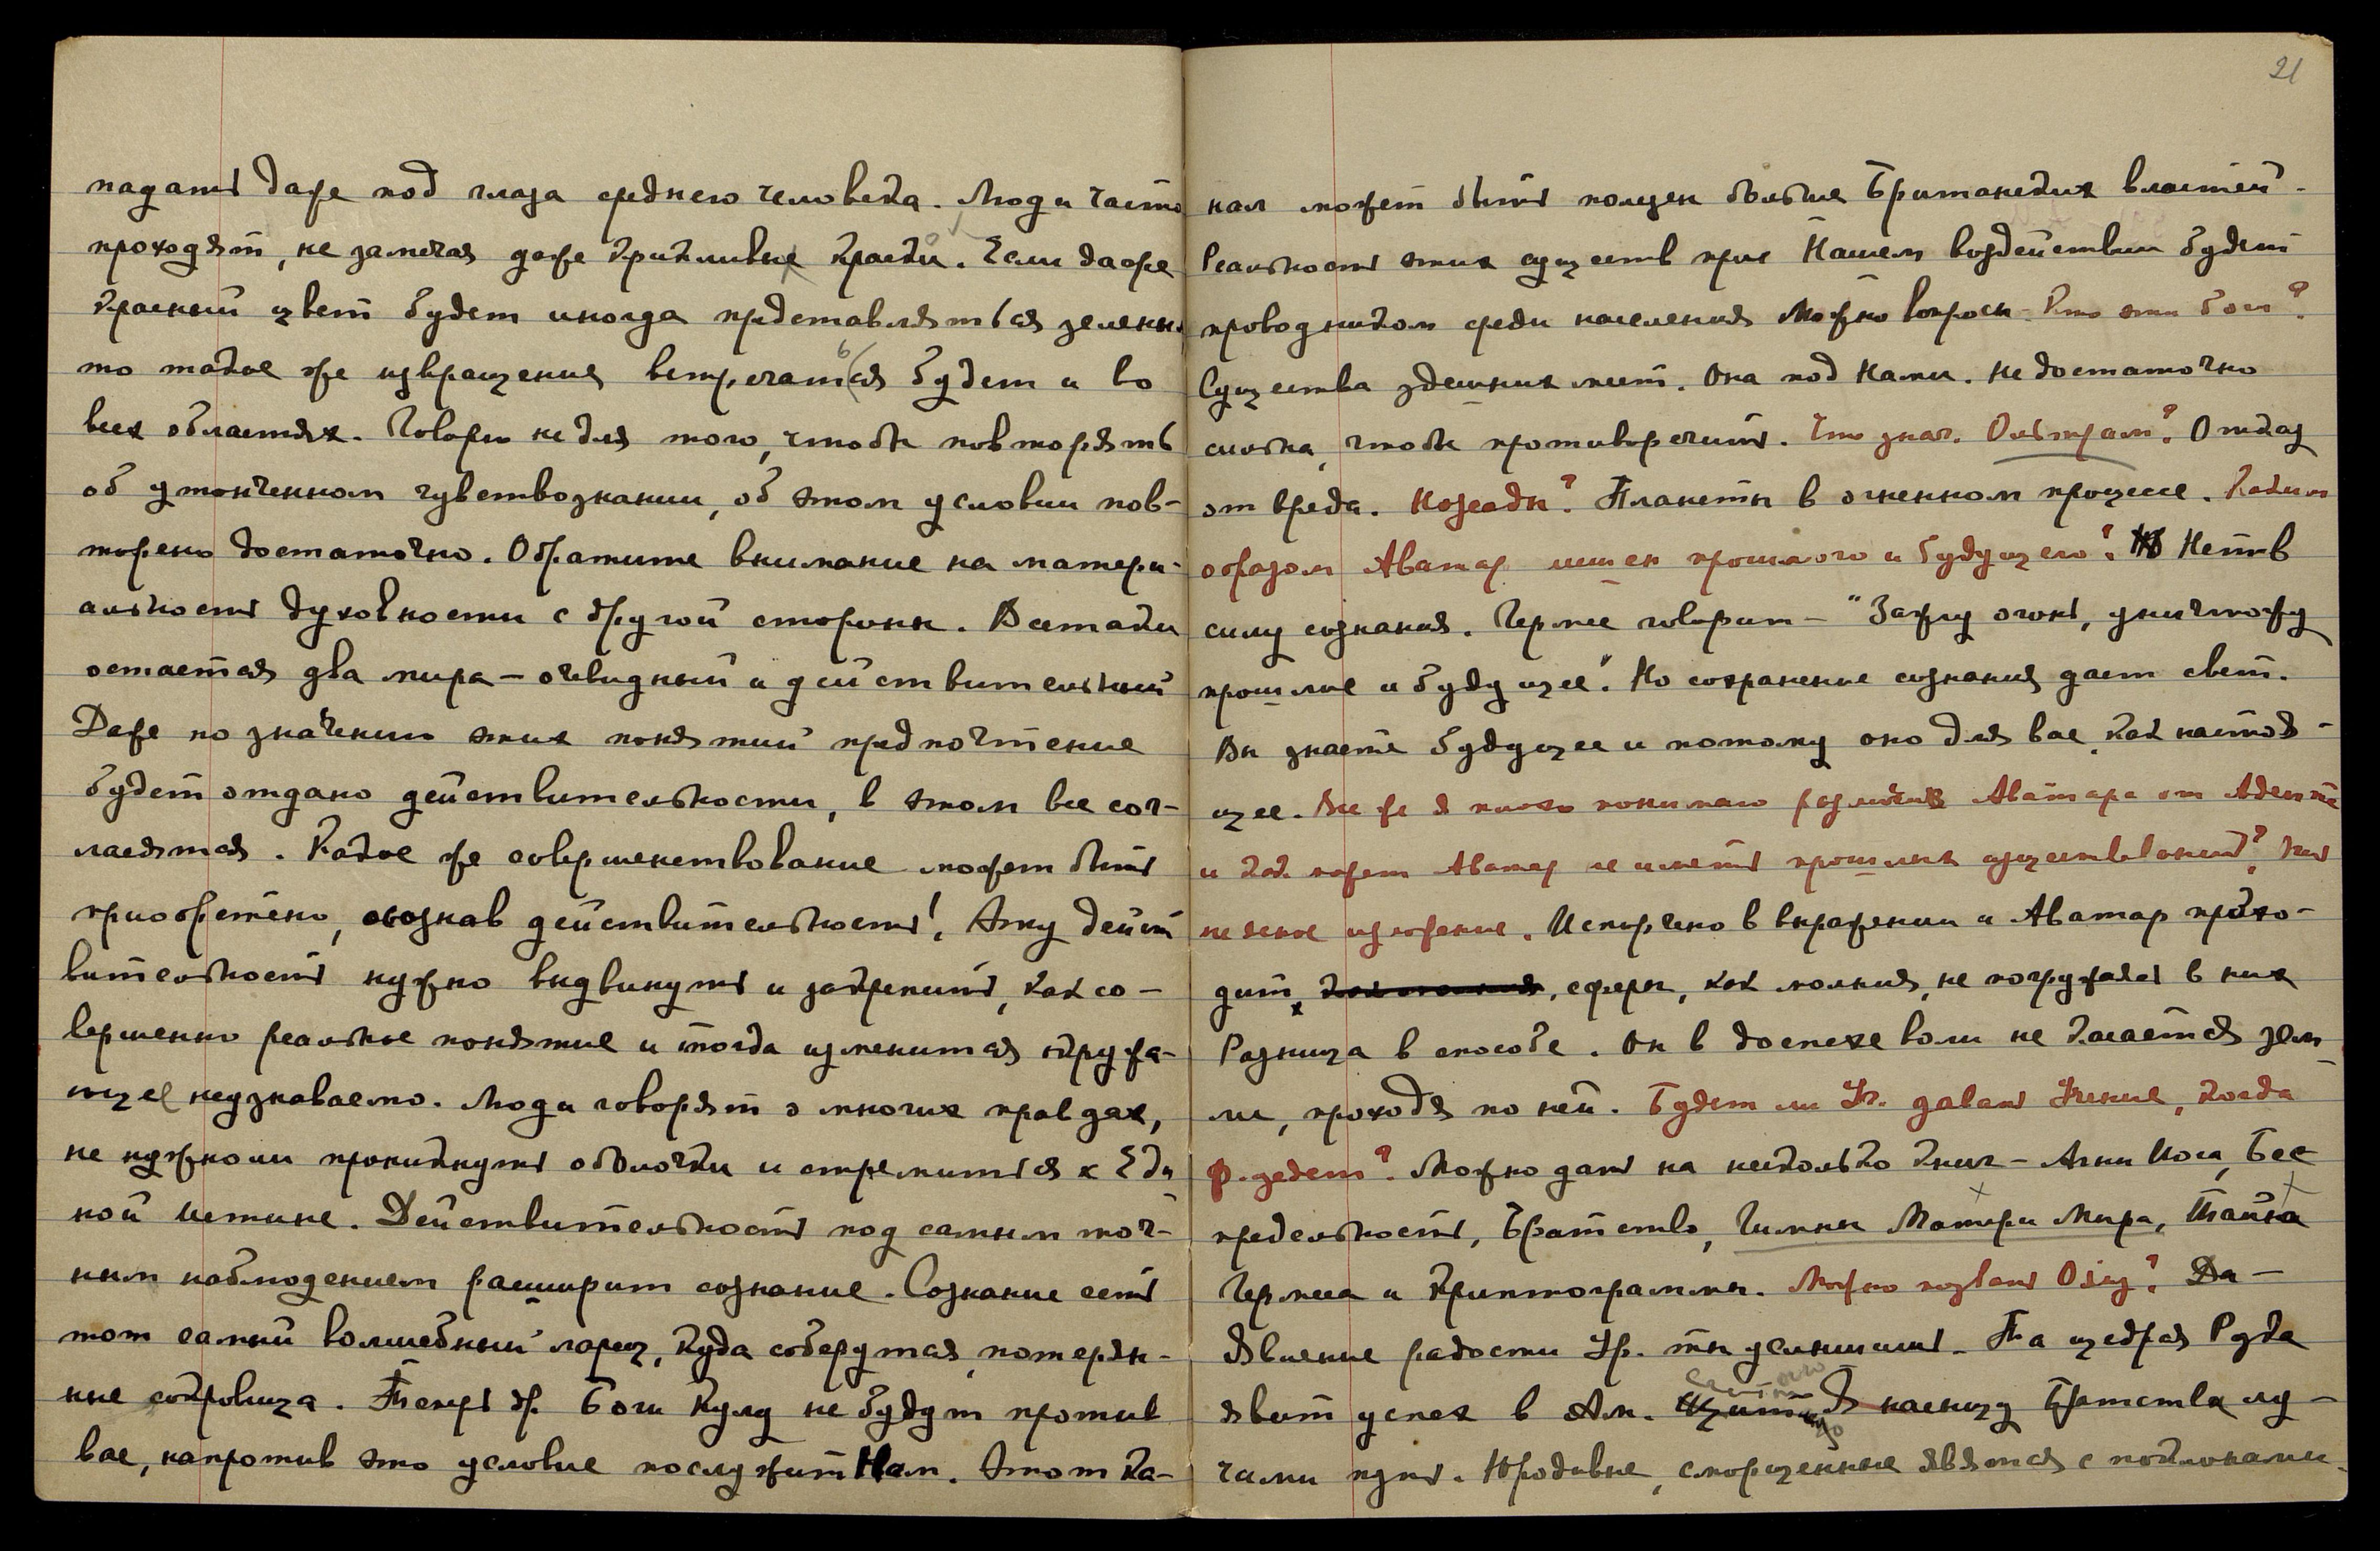 падать даже под глаза среднего человека. Люди часто
проходят, не замечая даже крикливые краски. Если даже
красный цвет будет иногда представляться зелены
то такое же извращение встречаться будет и во
всех областях. Говорю не для того, чтобы повторять
об утонченном чувствознании, об этом условии пов-
торено достаточно. Обратите внимание на матери-
альность духовности с другой стороны. Все таки
остается два мира – очевидный и действительный
Даже по значению этих понятий предпочтение
будет отдано действительности, в этом все сог-
ласятся. Какое же совершенствование может быть
приобретено, осознав действительность! Эту дейст
вительность нужно выдвинуть и закрепить, как со-
вершенно реальное понятие и тогда изменится окружа-
ющее неузнаваемо. Люди говорят о многих правдах,
не нужно ли проникнуть оболочки и стремиться к Еди
ной Истине. Действительность под самым точ-
ным наблюдением расширит сознание. Сознание есть
тот самый волшебный ларец, куда соберутся потерян-
ные сокровища. Теперь др. Боги Кулу не будут против
вас, напротив это условие послужит Нам. Этот ка-
21
нал может быть полезен больше Британских властей.
Реальность этих существ при Нашем воздействии будет
проводником среди населения Можно вопросы – Кто эти боги?
Существа здешних мест. Она под Нами. Не достаточно
сильна, чтобы противоречить. Что знач. Ольтрам? Отказ
от вреда. Планеты в огненном процессе. Каким
образом Аватар лишен прошлого и будущего? Нетив
силу сознания. Гермес говорит – "Зажгу огонь, уничтожу
прошлое и будущее". Но сохранение сознания дает свет.
Вы знаете будущее и потому оно для вас как настоя-
щее. Все же я плохо понимаю различие Аватара от Адепта
и как может Аватар не иметь прошлых существований?
не ясное изложение. Испорчено в выражении и Аватар прохо-
дит, сферы, как молния, не погружаясь в них
Разница в способе. Он в доспехе воли не касается зем-
ли, проходя по ней. Будет ли Ур. давать Учение, когда
Ф. уедет? Можно дать на несколько книг – Агни Иога, Бес
предельность, Братство, Гимны Матери Мира, Тайна
Гермеса и Криптограммы. Можно позвать Ояну? Да –
Явление радости Ур. ты услышишь. Та щедрая Рука
явит успех в Ам. Я насыщу Братства лу-
чами путь. Юродивые, сморщенные явятся с поклонами.